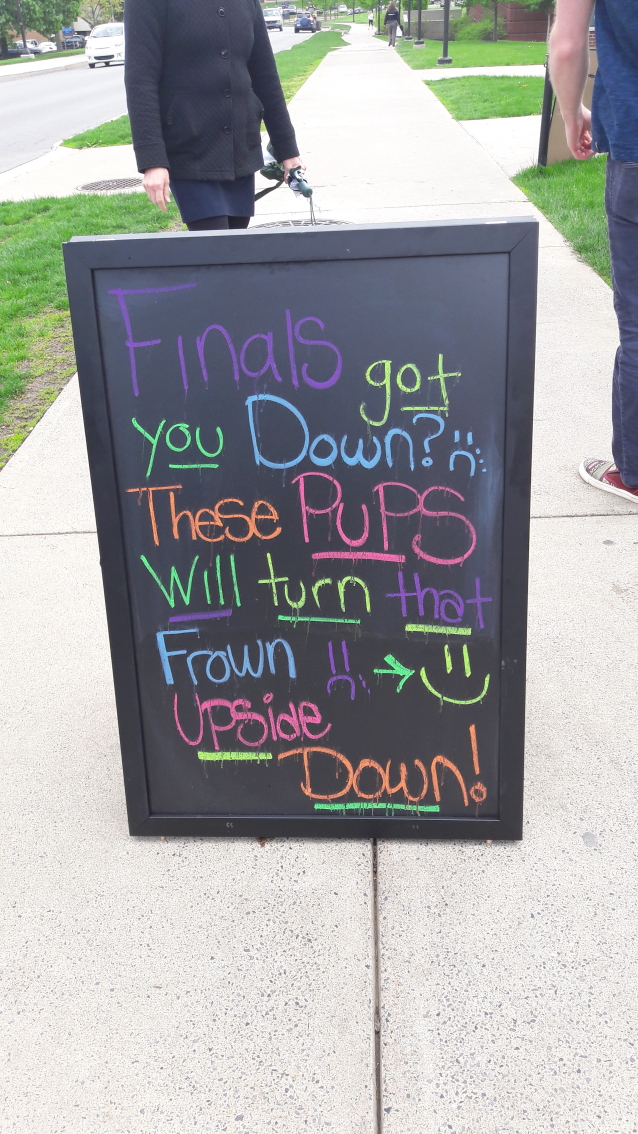 Finals got
you Down?
These PuPS
Will turn that
Frown
Upside
Down!